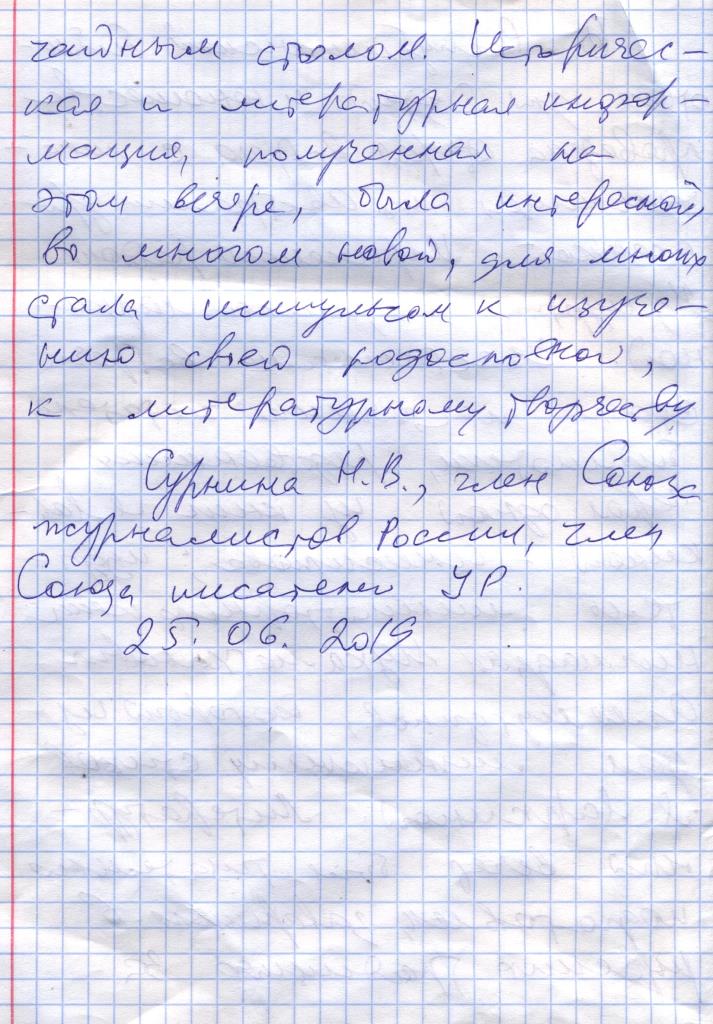 чайным столом. Историчес-
кая и литературная инфор-
мация, полученная на
этом вечере, была интересной,
во многом новой, для многих
стала импульсом к изуче-
нию своей родословной,
к литературному творчеству.
Сурнина Н.В., член Союза
журналистов России, член
Союза писателей УР.
25. 06. 2019